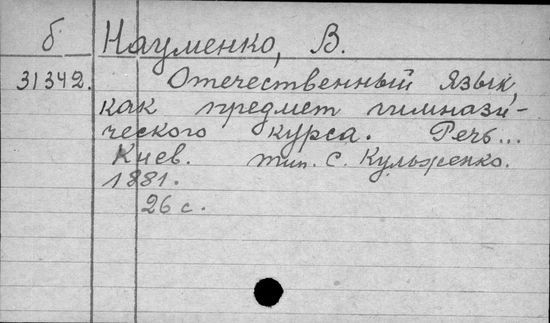 б Науменко, В.
31342. Отечественный язык,
как предмет гимнази-
ческого курса. Речь...
Киев. тип. С. Кульженко.
1881.
26 с.